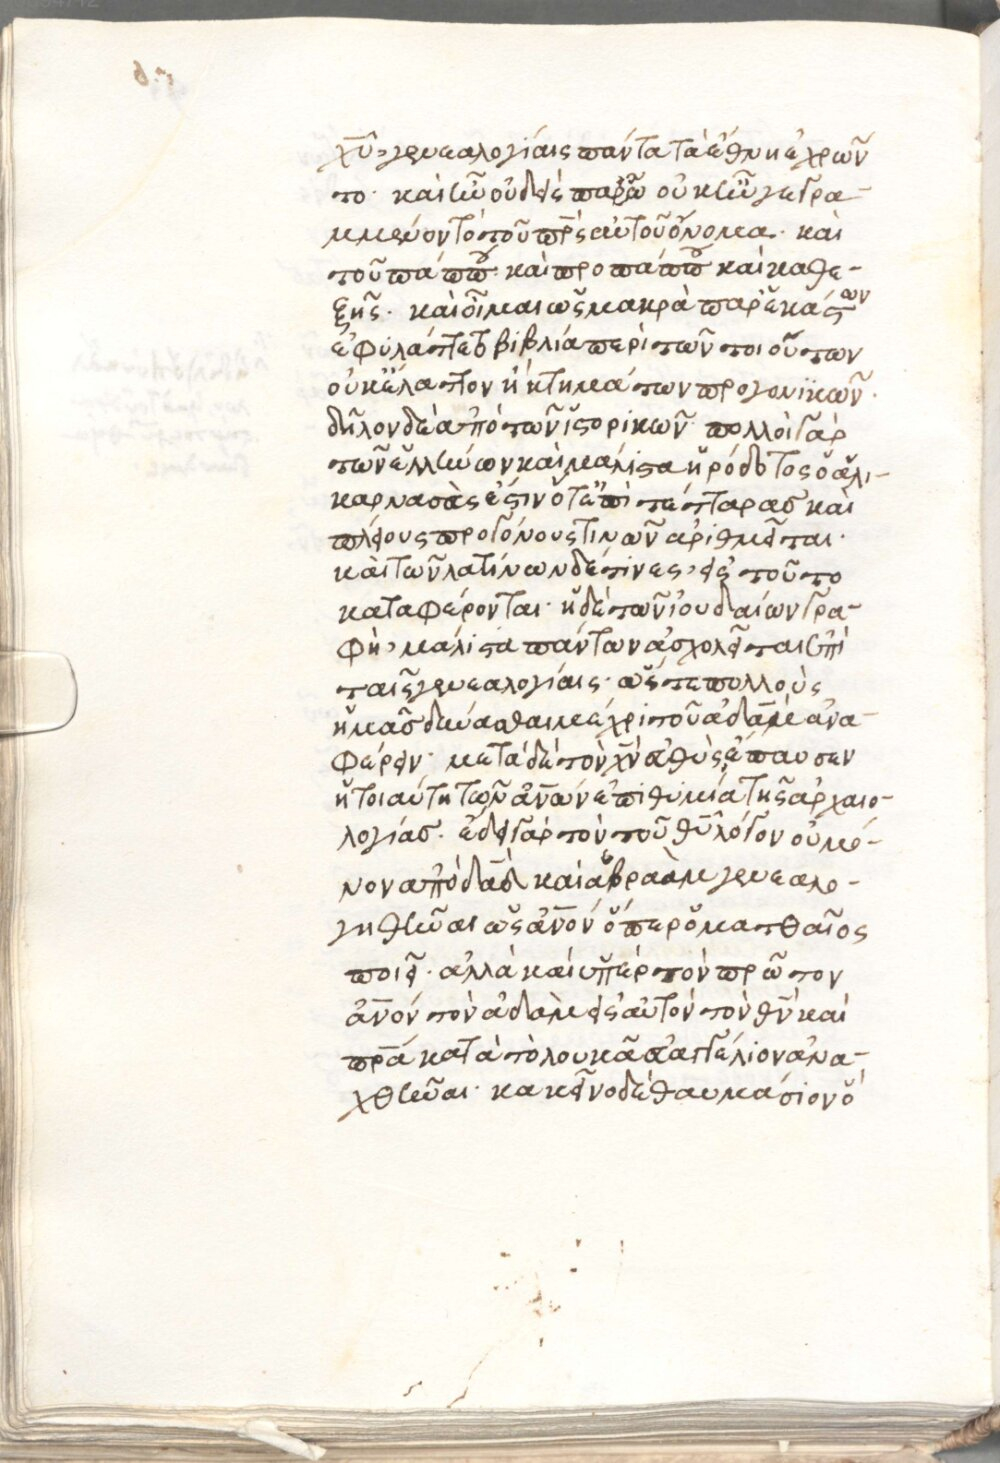 χ̅υ̅, γενεαλογίαις πάντα τὰ ἔθνη ἐχρῶν
το· καὶ ἦν οὐδεὶς παρ' ὧ οὐκ ἦν γεγρα-
μμένον τὸ τοῦ π̅ρ̅ς αὐτοῦ ὄνομα· καὶ
τοῦ πάππου· καὶ προπάππου καὶ καθε-
ξῆς· καὶ οἶμαι ὡς μακρὰ παρ' ἑκάστων
ἐφυλάττετο βιβλία περὶ τῶν τοιούτων
οὐκ ἔλαττον ἢ κτημάτων προγονικῶν·
δῆλον δὲ ἀπὸ τῶν ἱστορικῶν· πολλοὶ γὰρ
τῶν ἑλλήνων καὶ μάλιστα ἡρόδοτος ὁ ἁλι-
καρνασὰς ἐστὶν ὅτε ἐπὶ τέτταρας καὶ
πλείους προγόνους τινῶν ἀριθμεῖται·
καὶ τῶν λατίνων δέ τινες, εἰς τοῦτο
καταφέρονται· ἡ δὲ τῶν ἰουδαίων γρα-
φὴ, μάλιστα πάντων ἀσχολεῖται ἐπὶ
ταῖς γενεαλογίαις· ὥστε πολλοὺς
μέχρι τοῦ ἀδὰμ ἀνα-
φέρειν· μετὰ δὲ τὸν χ̅ν̅ εὐθὺς ἔπαυσεν
ἡ τοιαύτη τῶν ἀ̅ν̅ων ἐπιθυμία τῆς ἀρχαιο-
λογίας· ἔδει γὰρ τὸν τοῦ θ̅υ̅ λόγον οὐ μό-
νον ἀπὸ δα̅δ̅ καὶ ἀβραὰμ γενεαλο-
γηθῆναι ὡς ἀ̅ν̅ον ὅπερ ὁ ματθαῖος
ποιεῖ· ἀλλὰ καὶ ὑπὲρ τὸν πρῶτον
ἀ̅ν̅ον τὸν ἀδὰμ εἰς αὐτὸν τὸν θ̅ν̅ καὶ
π̅ρ̅α κατὰ τὸ λουκᾶ εὐαγγέλιον ἀνα-
χθῆναι· κακεῖνο δὲ θαυμάσιον ὃ